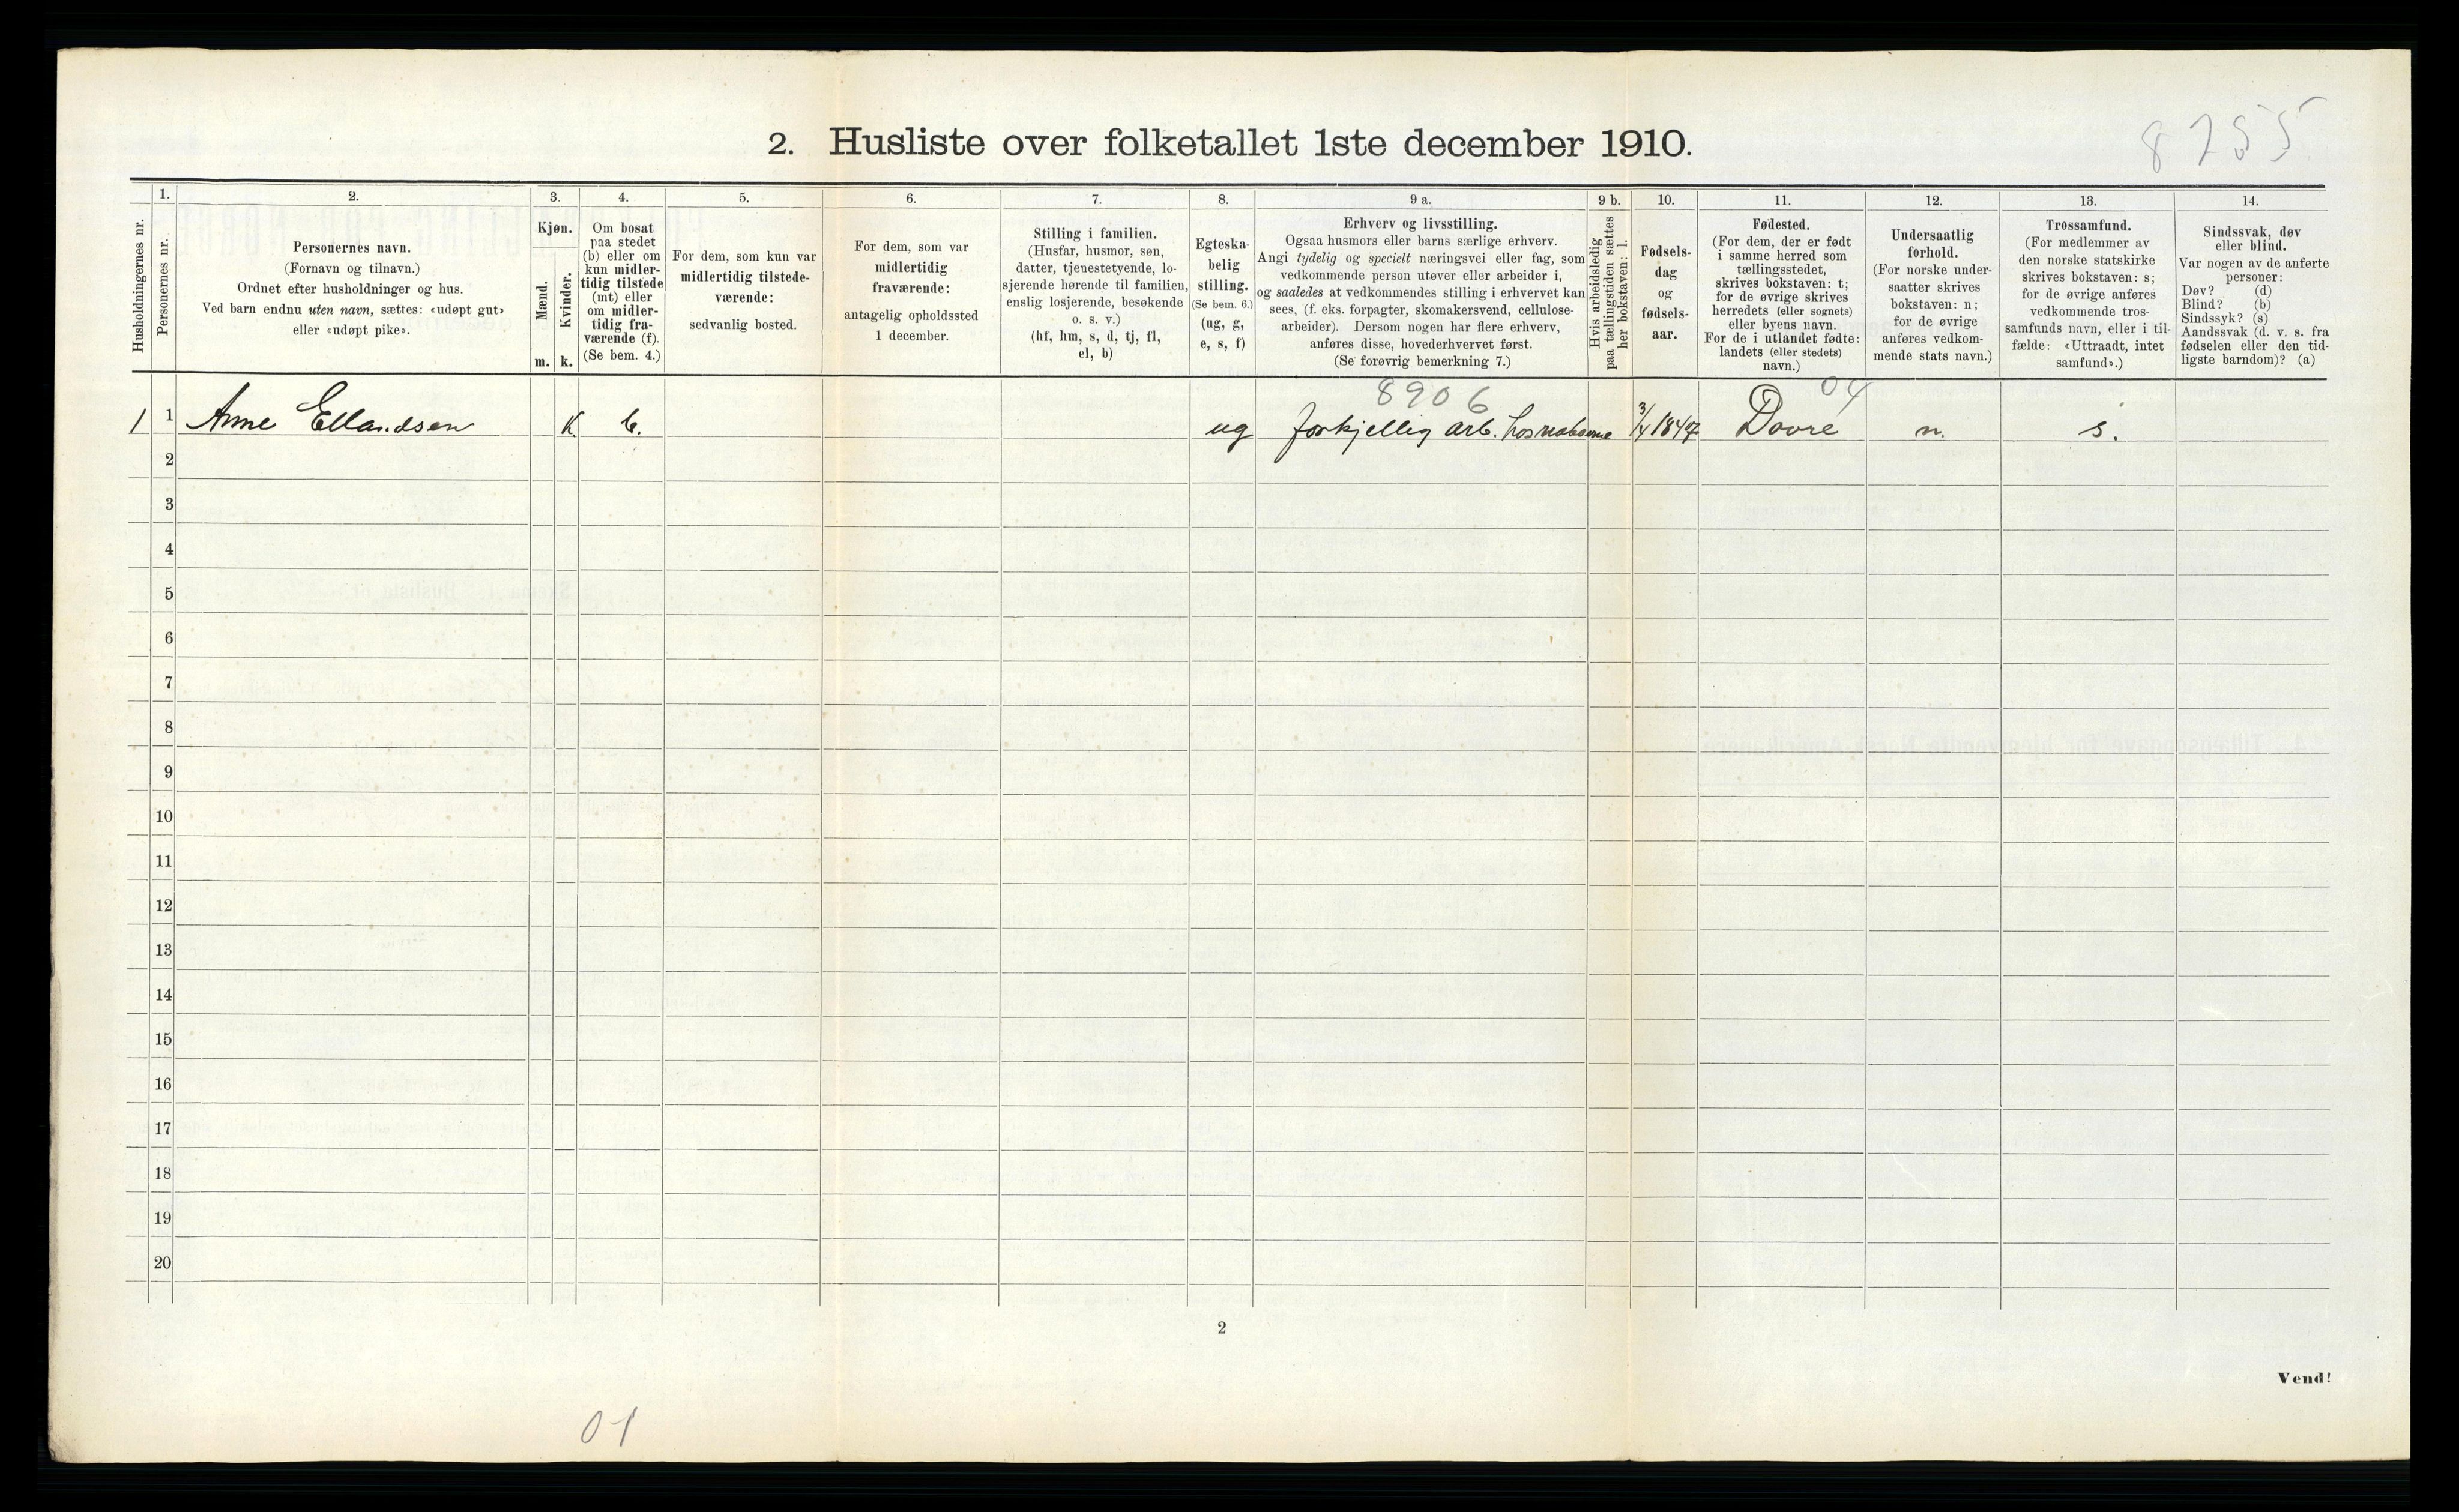 8755
2. Husliste over folketallet 1ste december 1910.
Husholdningernes nr.
1.
Personernes nr.
2.
Personernes navn.
(Fornavn og tilnavn.)
Ordnet efter husholdninger og hus.
Ved barn endnu uten navn, sættes: «udøpt gut»
eller «udøpt pike».
3.
Kjøn.
Mænd.
Kvinder.
m. k.
4.
Om bosat
paa stedet
(b) eller om
kun midler-
tidig tilstede
(mt) eller
om midler-
tidig fra-
værende (f).
(Se bem. 4.)
5.
For dem, som kun var
midlertidig tilstede-
værende:
sedvanlig bosted.
6.
For dem, som var
midlertidig
fraværende:
antagelig opholdssted
1 december.
7.
Stilling i familien.
(Husfar, husmor, søn,
datter, tjenestetyende, lo-
sjerende hørende til familien,
enslig losjerende, besøkende
o. s. v.)
(hf, hm, s, d, tj, fl,
el, b)
8.
Egteska-
belig
stilling.
(Se bem. 6.)
(ug, g,
e, s, f)
9 a.
Erhverv og livsstilling.
Ogsaa husmors eller barns særlige erhverv.
Angi tydelig og specielt næringsvei eller fag, som
vedkommende person utøver eller arbeider i,
og saaledes at vedkommendes stilling i erhvervet kan
sees, (f. eks. forpagter, skomakersvend, cellulose-
arbeider). Dersom nogen har flere erhverv,
anføres disse, hovederhvervet først.
(Se forøvrig bemerkning 7.)
9 b.
Hvis arbeidsledig
paa tællingstiden sættes
her bokstaven: l.
10.
Fødsels-
dag
og
fødsels-
aar.
11.
Fødested.
(For dem, der er født
i samme herred som
tællingsstedet,
skrives bokstaven: t;
for de øvrige skrives
herredets (eller sognets)
eller byens navn.
For de i utlandet fødte:
landets (eller stedets)
navn.)
12.
Undersaatlig
forhold.
(For norske under-
saatter skrives
bokstaven: n;
for de øvrige
anføres vedkom-
mende stats navn.)
13.
Trossamfund.
(For medlemmer av
den norske statskirke
skrives bokstaven: s;
for de øvrige anføres
vedkommende tros-
samfunds navn, eller i til-
fælde: «Uttraadt, intet
samfund».)
14.
Sindssvak, døv
eller blind.
Var nogen av de anførte
personer:
Døv? (d)
Blind? (b)
Sindssyk? (s)
Aandssvak (d. v. s. fra
fødselen eller den tid-
ligste barndom)? (a)
8906 04
1 1 Anne Ellandsen K b. ug forkjellig arb. hos naboerne 3/4 1847 Dovre n. s.
2
3
4
5
6
7
8
9
10
11
12
13
14
15
16
17
18
19
20
2
Vend!
01